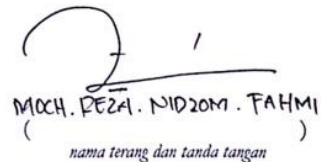 MOCH. REZA. NIDZOM. FAHMI
( )
nama terang dan tanda tangan